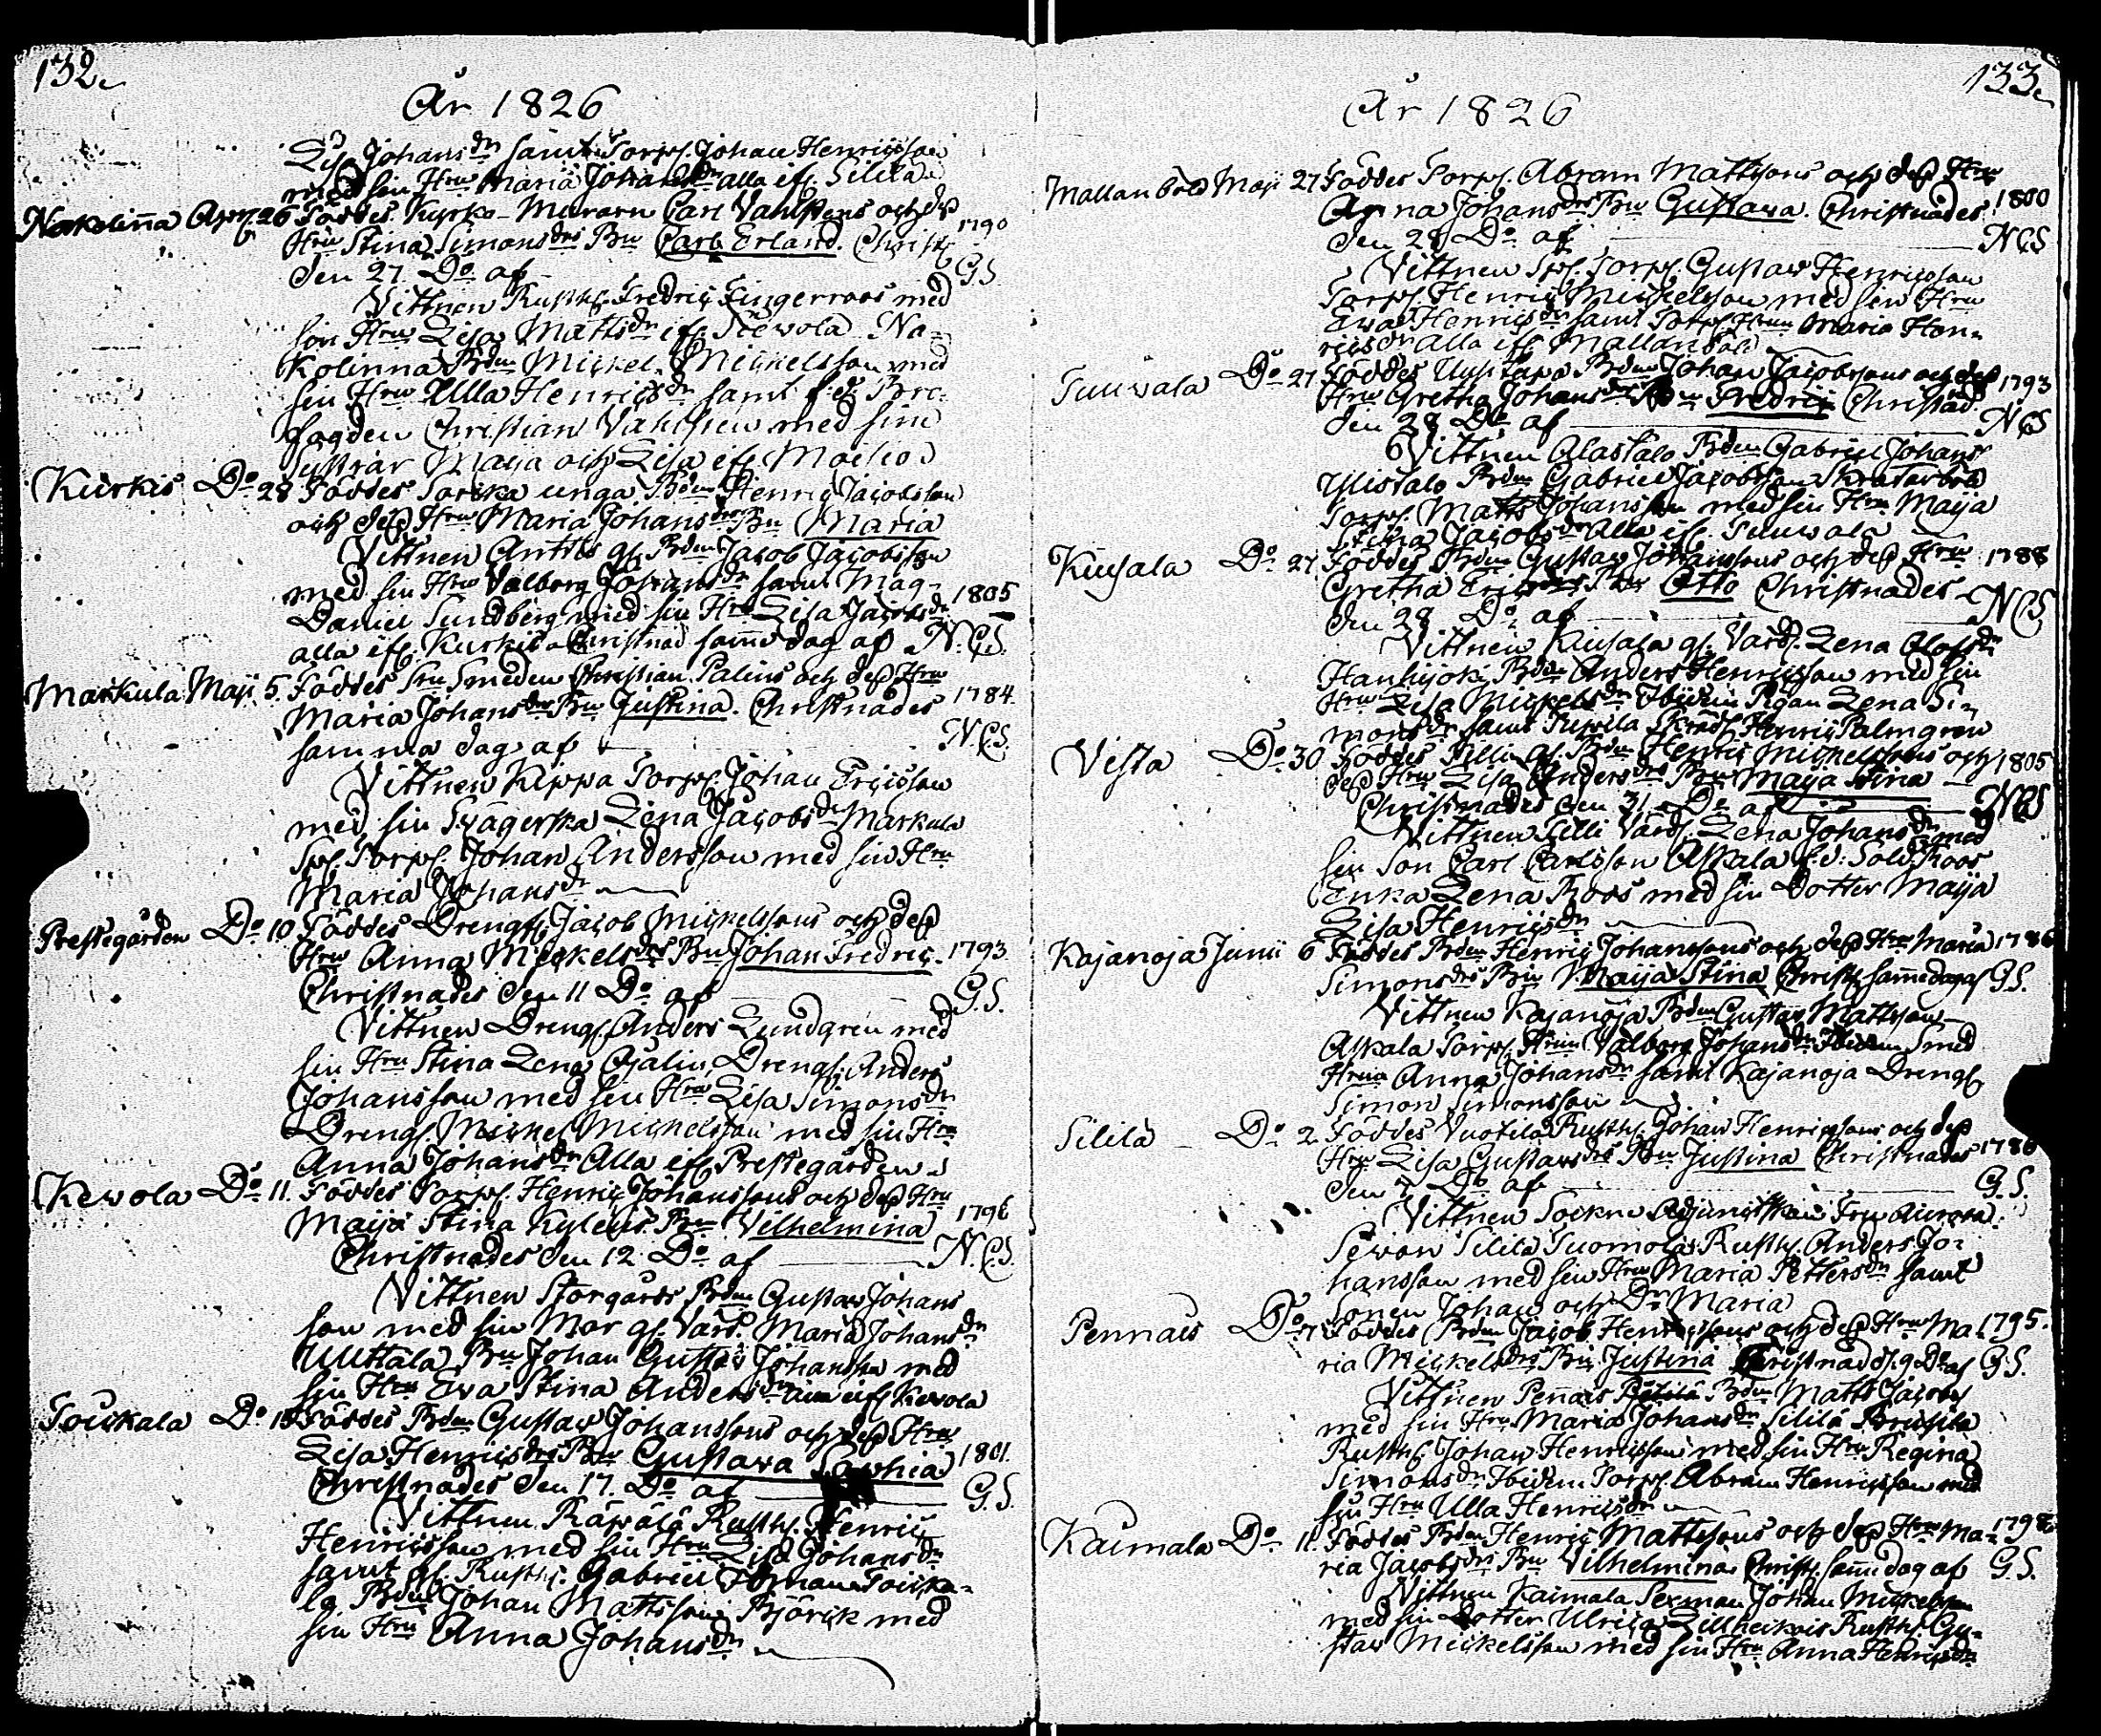 132.
År 1826
Lisa Johansdn samt Torps. Johan Henricsson
med sin Hru Maria Johansdn alla ifr. Sililä
Nakolinna Apr. 26 Föddes Kyrko-Muraren Carl Vahlstens och dess
Hru Stina Simonsdrs Bn Carl Erland. Christs 1790
den 27 Do af G.S.
Vittnen Rusth. Fredric Fingerroos med
sin Hru Lisa Mattsdn ifr. Kewola Na-
kolinna Bden Michel Michelsson med
sin Hru Ulla Henricsdn samt f.d. Bro-
fogden Christian Vahlsten med sina
Systrar Maija och Lisa ifr.
Kurkis Do 28 Föddes unga Bden Henric Jacobsson
och dess Hru Maria Johansdrs Bn Maria
Vittnen Anttis gl. Bden Jacob Jacobsson
med sin Hru Valborg Johansdn samt Mag.
Daniel Sundberg med sin Hru Lisa Jacobsdn 1805
alla ifr. Kurkis Christnad samma dag af N.C.S.
Markula Maji 5. Föddes Smeden Christian Palins och dess Hru
Maria Johansdrs Bn Justina. Christnades 1784
samma dag af N.C.S.
Vittnen Kippa Torps. Johan Ericsson
med sin Svägerska Lena Jacobsdn Markula
Torps. Johan Andersson med sin Hru
Maria Johansdn
Prestegården Do 10 Föddes Drengs. Jacob Michelssons och dess
Hru Anna Michelsdrs Bn Johan Fredric. 1793
Christnades den 11 Do af G.S.
Vittnen Drengs. Anders Lundgren med
sin Hru Stina Lena Drengs. Anders
Johansson med sin Hru Lisa Simonsdn
Drengs Michel Michelsson med sin Hru
Anna Johansdn Alla ifr. Prestegården
Kewola Do 11. Föddes Torps. Henric Johanssons och dess Hru
Maija Stina Kylens Bn Vilhelmina 1796
Christnades den 12 Do af N.C.S.
Vittnen Storgårds Bden Gustav Johans
son med sin Mor gl. Värd. Maria Johansdn
Uuttala Bn Johan Gustav Johansson med
sin Hru Eva Stina Andersdn alla ifr Kewola
Toukala Do Föddes Bden Gustav Johanssons och dess Hru
Lisa Henricsdrs Bn Gustava Sophia 1801.
Christnades den 17. Do af G.S.
Vittnen Räpälä Rusth. Henric
Henricsson med sin Hru Lisa Johansdn
samt gl. Rusth. Gabriel Touka-
la Bden Johan Mattsson Björck med
sin Hru Anna Johansdn
133.
År 1826
Mallanböle Maji 27 Föddes Torps. Abram Mattssons och dess Hru
Anna Johansdrs Bn Gustava. Christnades 1800
den 28 Do af NCS
Vittnen Torps. Gustav Henricsson
Torps. Henric Michelsson med sin Hru
Eva Henricsdn samt Torps. Hrun Maria Hen-
ricsdn alla ifr Mallanböle
Tuuvala Do 27 Föddes Bden Johan Jacobssons och dess
Hru Gretha Johansdrs Bn Fredric Christnad 1793
den 28 Do af NCS
Vittnen Alastalo Bden Gabriel Johans
Ylistalo Bden Gabriel Jacobsson
Torps. Matts Johansson med sin Hru Maija
Stina Jacobsdn Alla ifr. Tuuvala
Kuusala Do 27 Föddes Bden Gustav Johanssons och dess Hru 1788
Gretha Bn Otto Christnades
den 28 Do af NCS
Vittnen Kuusala gl. Värd. Lena Olofsdn
Hanhijoki Bden Anders Henricsson med sin
Hru Lisa Michelsdn Ibidem Pigan Lena Si-
monsdn samt Henric Palmgren
Vista Do 30 Föddes Tilli gl. Bden Henric Michelssons och 1805
dess Hru Lisa Andersdrs Bn Maija Stina
Christnades den 31 Do af NCS
Vittnen Tilli Värd. Lena Johansdn med
sin Son Carl Carlsson Askala f.d. Sold. Roos
Enka Lena Roos med sin Dotter Maija
Lisa Henricsdn
Kajanoja Junii 6 Föddes Bden Henric Johanssons och dess Hru Maria 1786
Simonsdrs Bn Maija Stina Christs samma dag af G.S.
Vittnen Kajanoja Bden Gustav Mattsson
Askala Torps. Hrun Valborg Johansdn Ibidem Smed
Hrun Anna Johansdn samt Kajanoja Drengs
Simon Simonsson
Sililä Do 2 Föddes Vuotila Rusth. Johan Henricssons och dess
Hru Lisa Gustavsdrs Bn Justina Christnades 1786
den 7 Do af G.S.
Vittnen Sockne Adjunctskan Fru Aurora
Sevon Sililä Suomola Rusth. Anders Jo-
hansson med sin Hru Maria Pettersdn samt
Sonen Johan och Dr Maria
Pennais Do 7 Föddes Bden Jacob Henricssons och dess Hru Ma- 1795.
ria Michelsdrs Bn Justina Christnad d. 9 Do af G.S.
Vittnen Pennais Bden Matts Jacobs
med sin Hru Maria Johansdn Sililä
Rusth. Johan Henricsson med sin Hru Regina
Simonsdn Ibidem Torps. Abram Henricsson med
sin Hru Ulla Henricsdn
Kaimala Do 11. Föddes Bden Henric Mattssons och dess Hru Ma- 1798
ria Jacobsdrs Bn Vilhelmina Christs. samma dag af G.S.
Vittnen Kaimala Sexman Johan Michelsson
med sin Dotter Ulrica Rusth. Gu-
stav Michelsson med sin Hru Anna Henricsdn